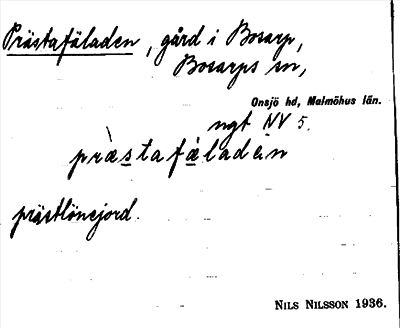 Prästafäladen, gård i Bosarp,
Bosarps sn,
Onsjö hd, Malmöhus län.
ngt NV 5.
præ̀stafæ̀ladən
prästlönejord.
NILS NILSSON 1936.